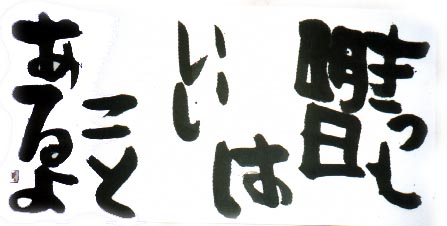 きっと
明日
は
いい
こと
あるよ